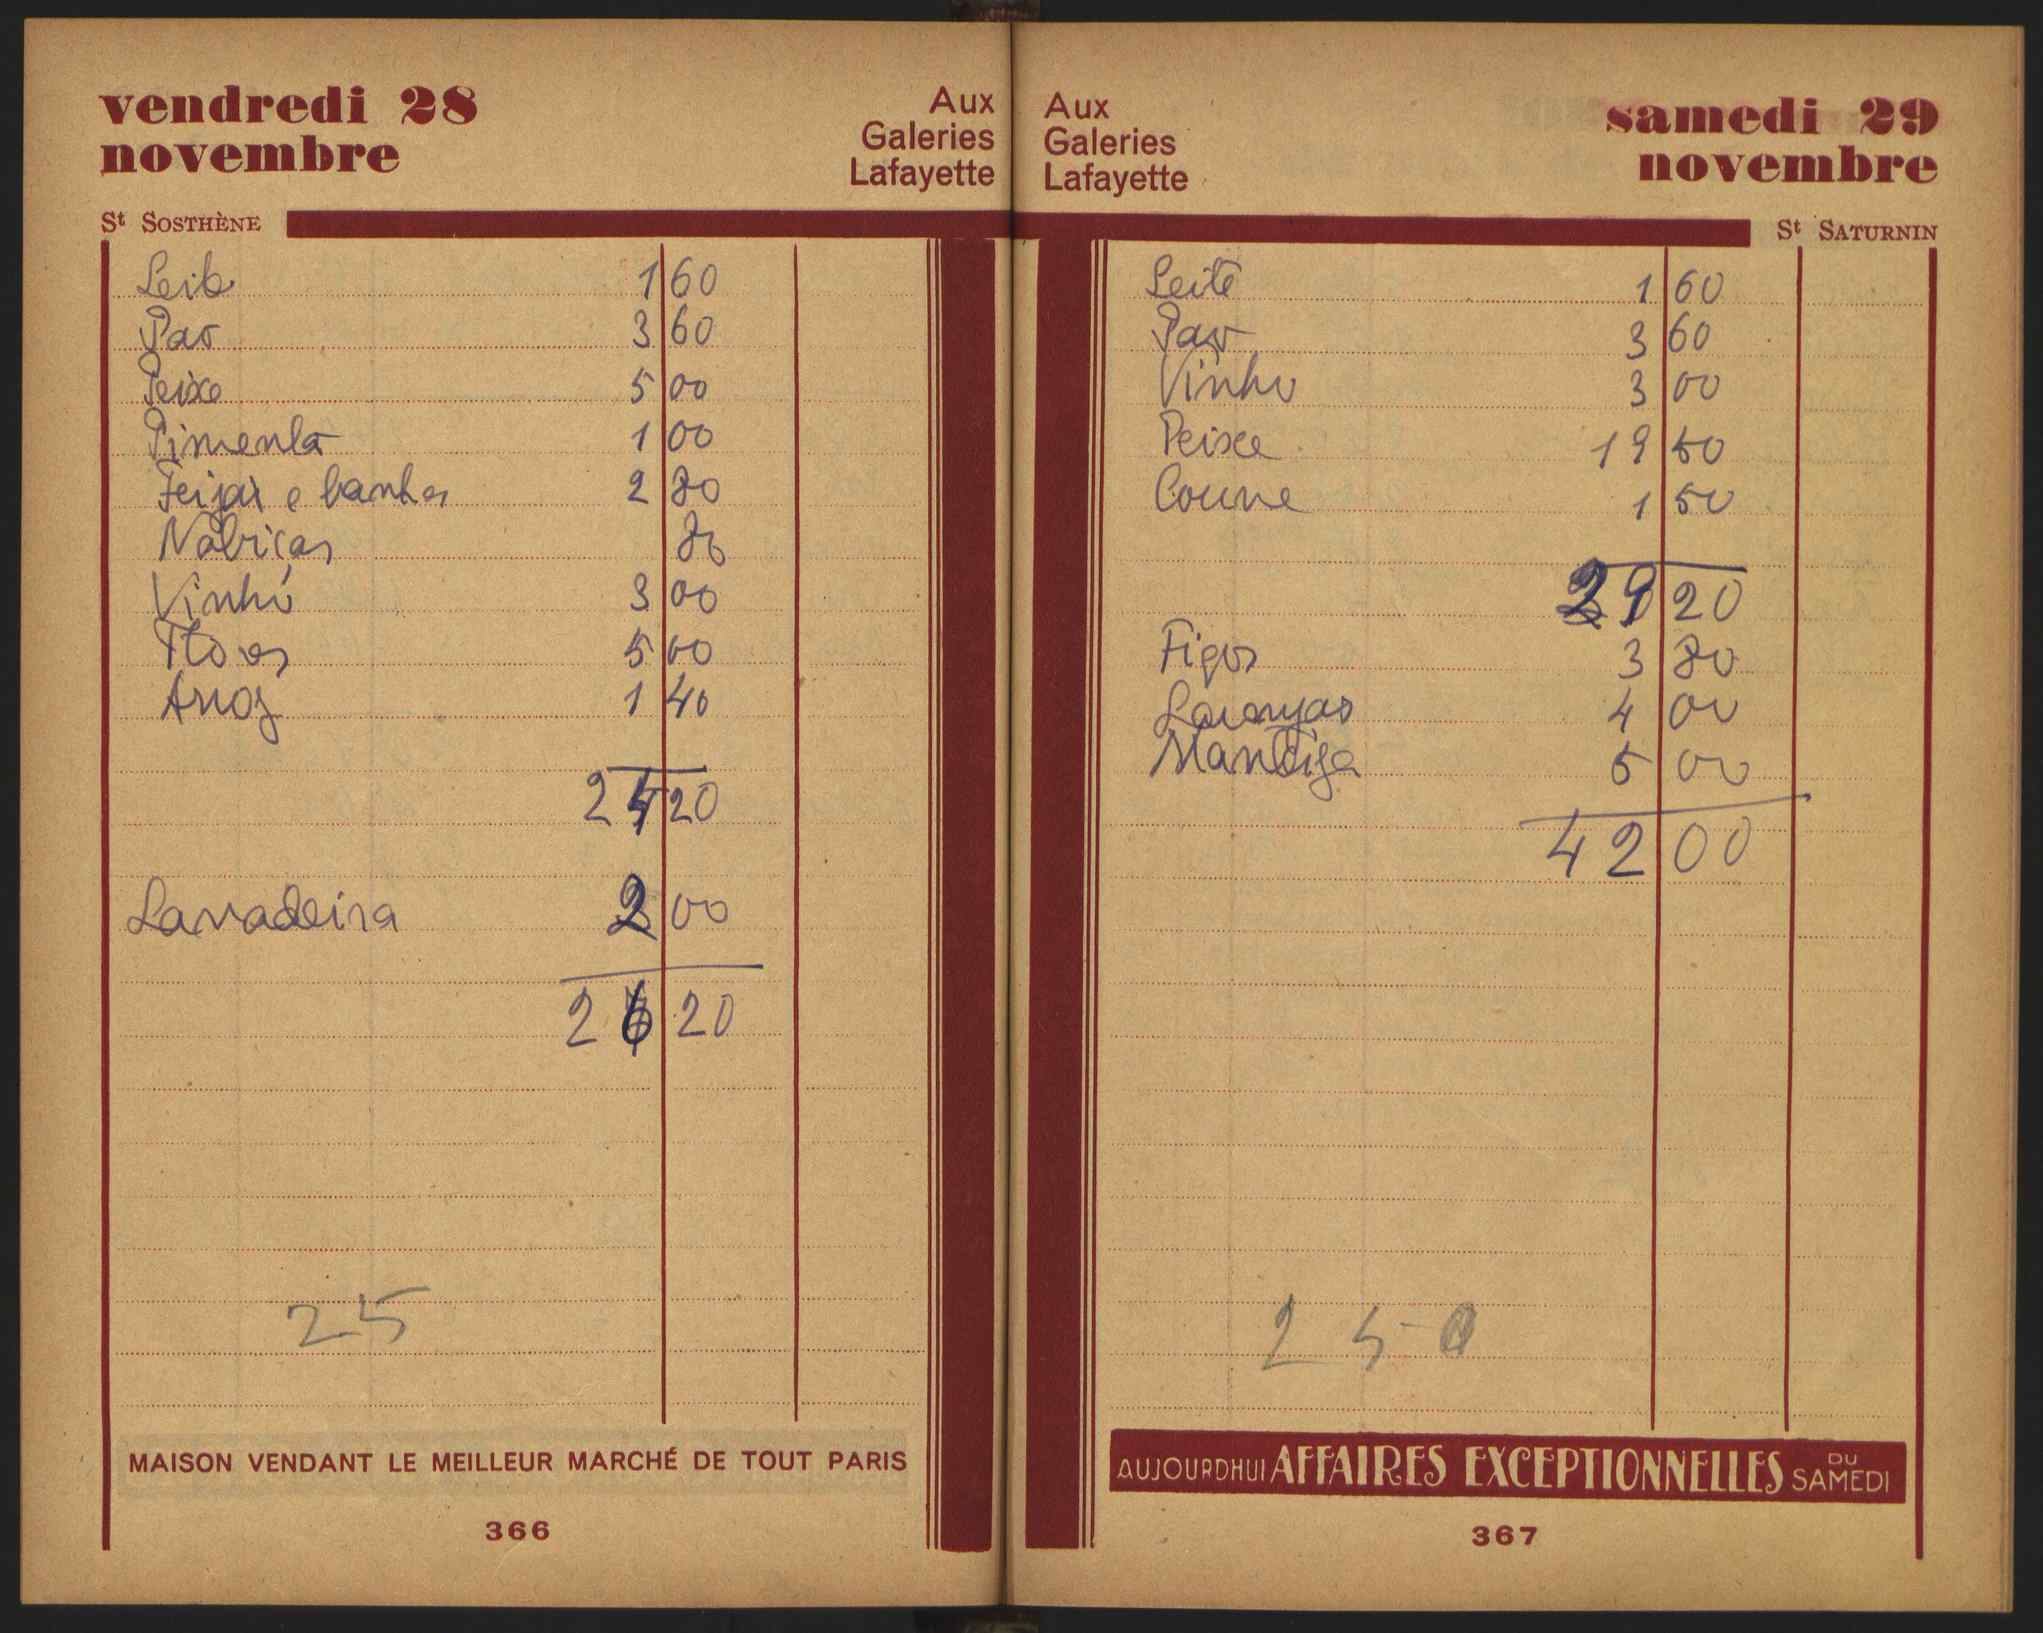 vendredi 28
novembre
Aux
Galeries
Lafayette
St SOSTHÈNE
Leite 1 60
Pao 3 60
Peixe 5 00
Pimenta 1 00
Feijão e banha 2 80
Nabiças 80
Vinho 3 00
Flores 5 00
Arroz 1 40
24 20
Lavadeira 2 00
26 20
25
MAISON VENDANT LE MEILLEUR MARCHÉ DE TOUT PARIS
366
Aux
Galeries
Lafayette
samedi 29
novembre
St SATURNIN
Leite 1 60
Pao 3 60
Vinho 3 00
Peixe 19 50
Couve 1 50
29 20
Figos 3 80
Laranjas 4 00
Manteiga 5 00
42 00
25 0
AUJOURDHUI AFFAIRES EXCEPTIONNELLES DU SAMEDI
367